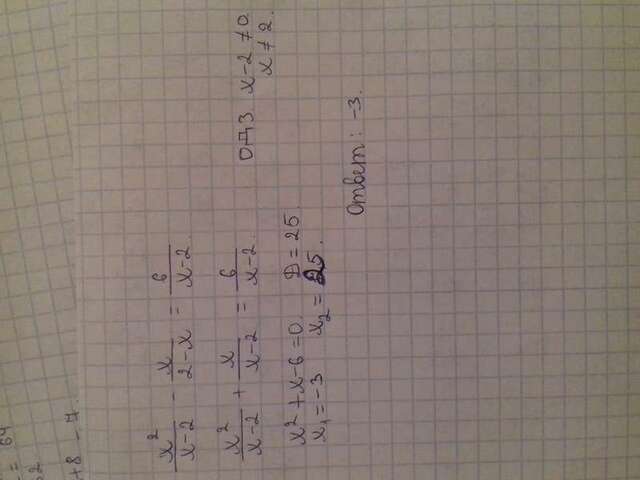 x²/(x-2) - x/(2-x) = 6/(x-2). ОДЗ x-2≠0
x≠2.
x²/(x-2) + x/(x-2) = 6/(x-2).
x²+x-6=0. D=25.
x₁=-3 x₂=
Ответ: -3.
64
+8-4.